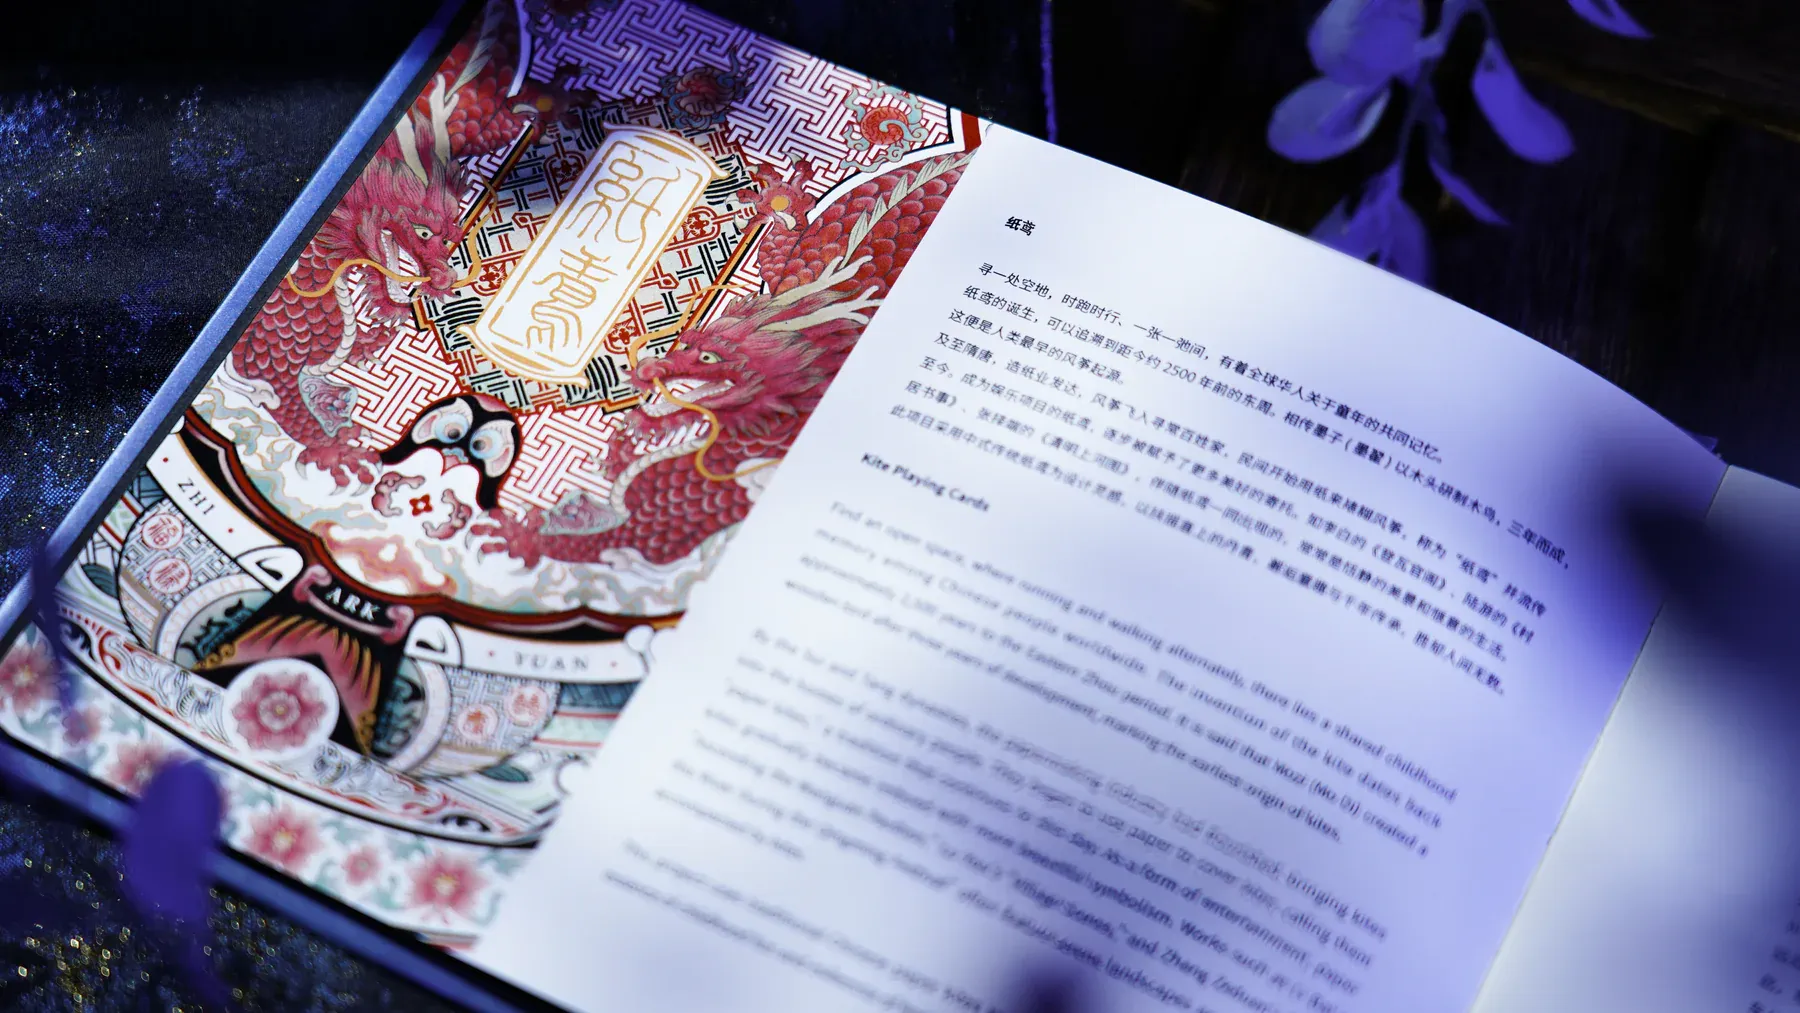 紙鳶
ZHI
ARK
YUAN
纸鸢
寻一处空地，时跑时行、一张一弛间，有着全球华人关于童年的共同记忆。
纸鸢的诞生，可以追溯到距今约 2500 年前的东周。相传墨子 ( 墨翟 ) 以木头研制木鸟，三年而成，
这便是人类最早的风筝起源。
及至隋唐，造纸业发达，风筝飞入寻常百姓家，民间开始用纸来裱糊风筝，称为“纸鸢”并流传
至今。成为娱乐项目的纸鸢，逐步被赋予了更多美好的寄托。如李白的《登瓦官阁》、陆游的《村
居书事》、张择端的《清明上河图》，伴随纸鸢一同出现的，常常是恬静的美景和惬意的生活。
此项目采用中式传统纸鸢为设计灵感，以纸鸢直上的丹青，邂逅童趣与千年传承，胜却人间无数。
Kite Playing Cards
Find an open space, where running and walking alternately, there lies a shared childhood
memory among Chinese people worldwide. The invention of the kite dates back
approximately 2,500 years to the Eastern Zhou period. It is said that Mozi (Mo Di) created a
wooden bird after three years of development, marking the earliest origin of kites.
By the Sui and Tang dynasties, the papermaking industry had flourished, bringing kites
into the homes of ordinary people. They began to use paper to cover kites, calling them
"paper kites," a tradition that continues to this day. As a form of entertainment, paper
kites gradually became imbued with more beautiful symbolism. Works such as
"Village Scenes," and Zhang Zeduan's
often feature serene landscapes
This project uses traditional Chinese paper kites